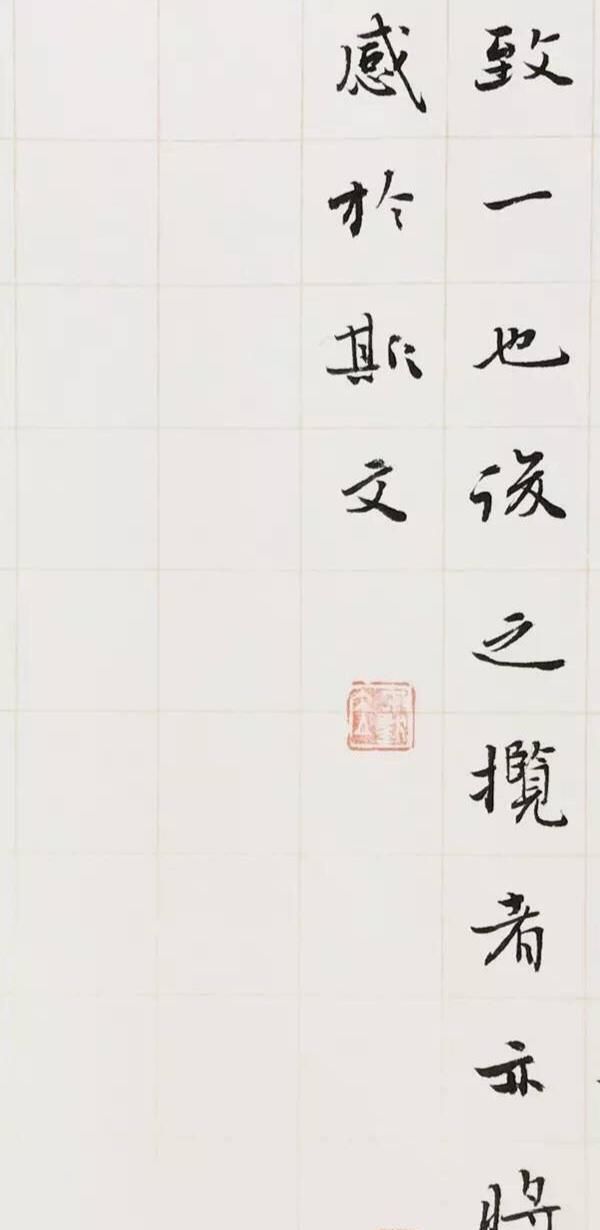 致一也後之攬者亦將
感於斯文